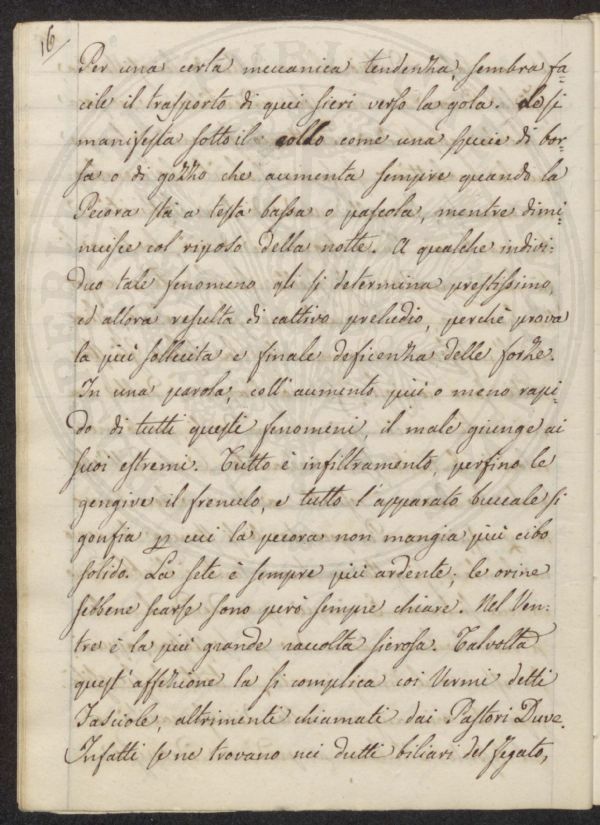 16
Per una certa meccanica tendenza, sembra fa-
cile il trasporto di quei sieri verso la gola. Lo si
manifesta sotto il collo come una specie di bor-
sa o di gozzo che aumenta sempre quando la
Pecora stà a testa bassa o pascola, mentre dimi-
nuisce col riposo della notte. A qualche indivi-
duo tale fenomeno gli si determina prestissimo,
ed allora resulta di cattivo preludio, perchè prova
la più sollecita e finale deficenza delle forze.
In una parola, coll'aumento più o meno rapi-
do di tutti questi fenomeni, il male giunge ai
suoi estremi. Tutto è infiltramento, perfino le
gengive il frenulo, e tutto l'apparato buccale si
gonfia p cui la pecora non mangia più cibo
solido. La sete è sempre più ardente; le orine
sebbene scarse sono però sempre chiare. Nel Ven-
tre è la più grande raccolta sierosa. Talvolta
quest'affezione la si complica coi Vermi detti
Fasciole, altrimenti chiamati dai Pastori Duve.
Infatti se ne trovano nei dutti biliari del fegato,